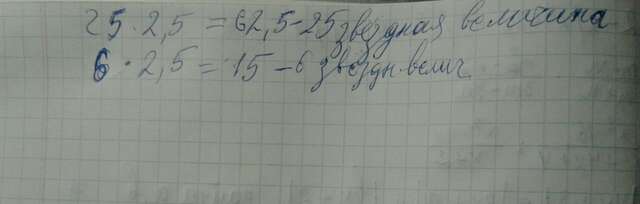 25 · 2,5 = 62,5 - 25 звёздная величина
6 · 2,5 = 15 - 6 звёздн. велич.